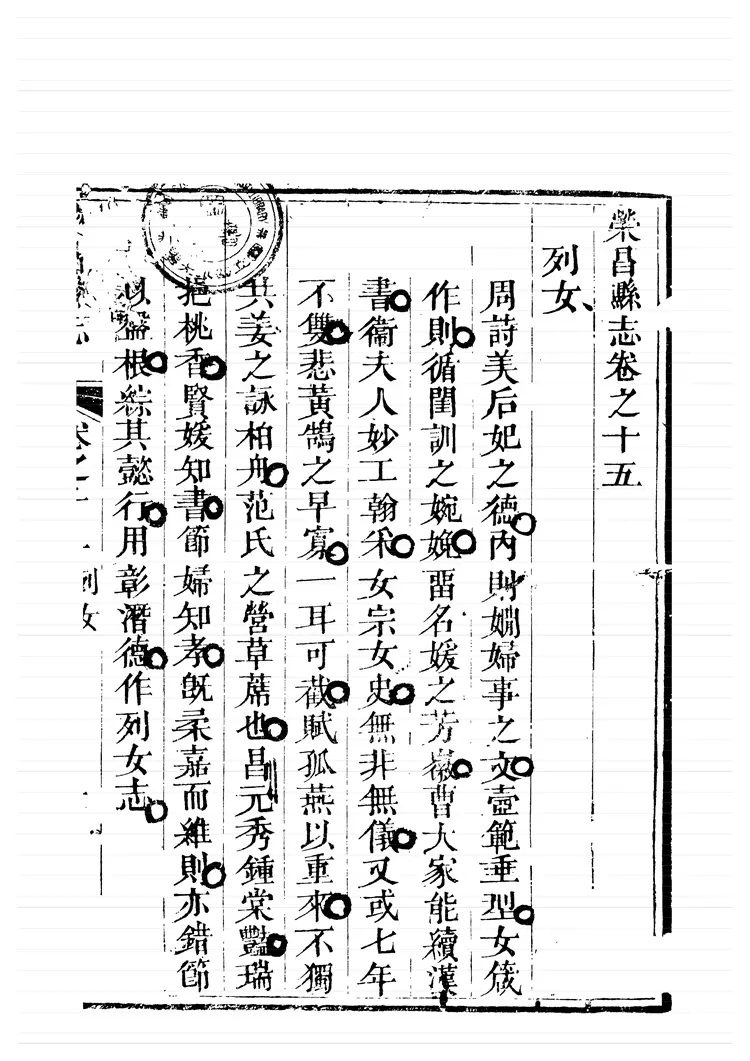 榮昌縣志卷之十五
列女
周詩美后妃之德內則嫺婦事之文壼範垂型女箴
作則循閨訓之婉娩畱名媛之芳徽曹大家能續漢
書衞夫人妙工翰采女宗女史無非無儀又或七年
不雙悲黃鵠之早寡一耳可截賦孤燕以重來不獨
共姜之詠柏舟范氏之營草蓆也昌元秀鍾棠豔瑞
挹桃香賢媛知書節婦知孝旣柔嘉而維則亦錯節
以盤根綜其懿行用彰潛德作列女志
志
卷之十
列女